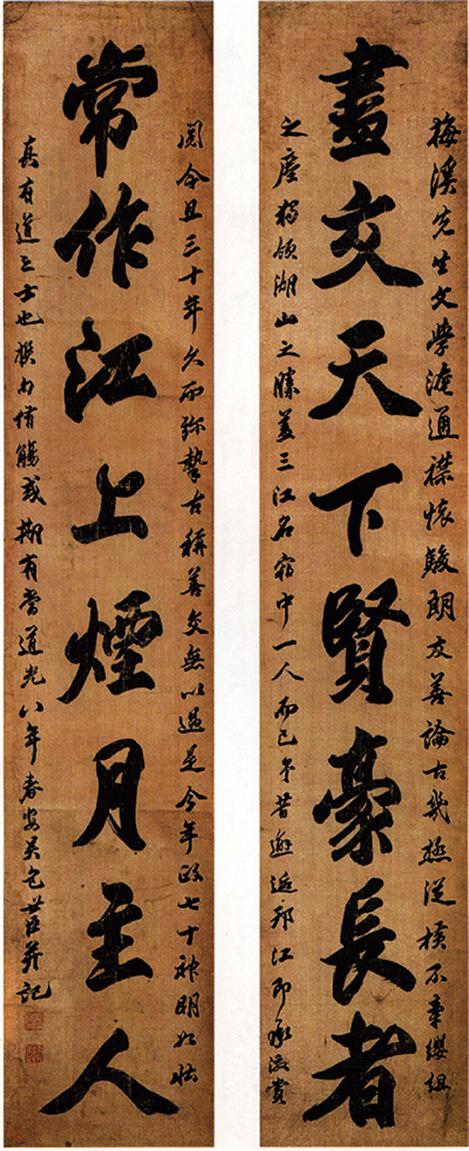 梅溪先生文學淹通襟懷駿朗友善論古幾極從橫不牽纓組
盡交天下賢豪長者
之塵獨領湖山之勝蓋三江名宿中一人而已弟昔邂逅邗江即承激賞
閱今且三十年久而彌摯古稱善交無以過是今年政七十神明如
常作江上煙月主人
真有道之士也撰句侑觴或有當道光八年春安吳包世臣并記